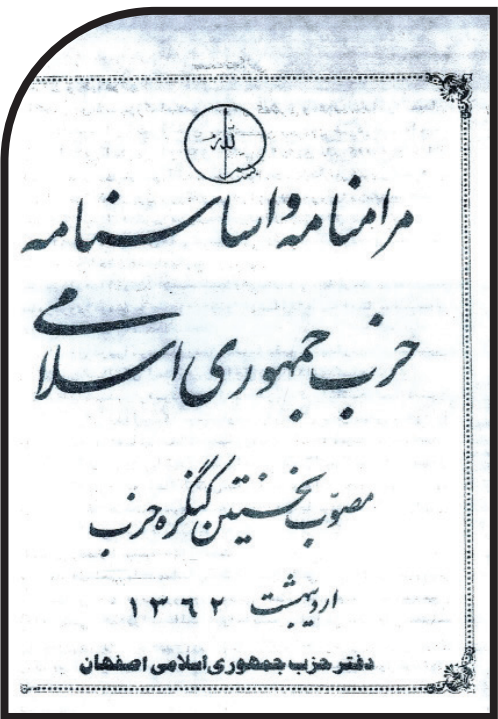 مرامنامه و اساسنامه
حزب جمهوری اسلامی
مصوّب نخستین کنگره حزب
اردیبهشت ۱۳۶۲
دفتر حزب جمهوری اسلامی اصفهان